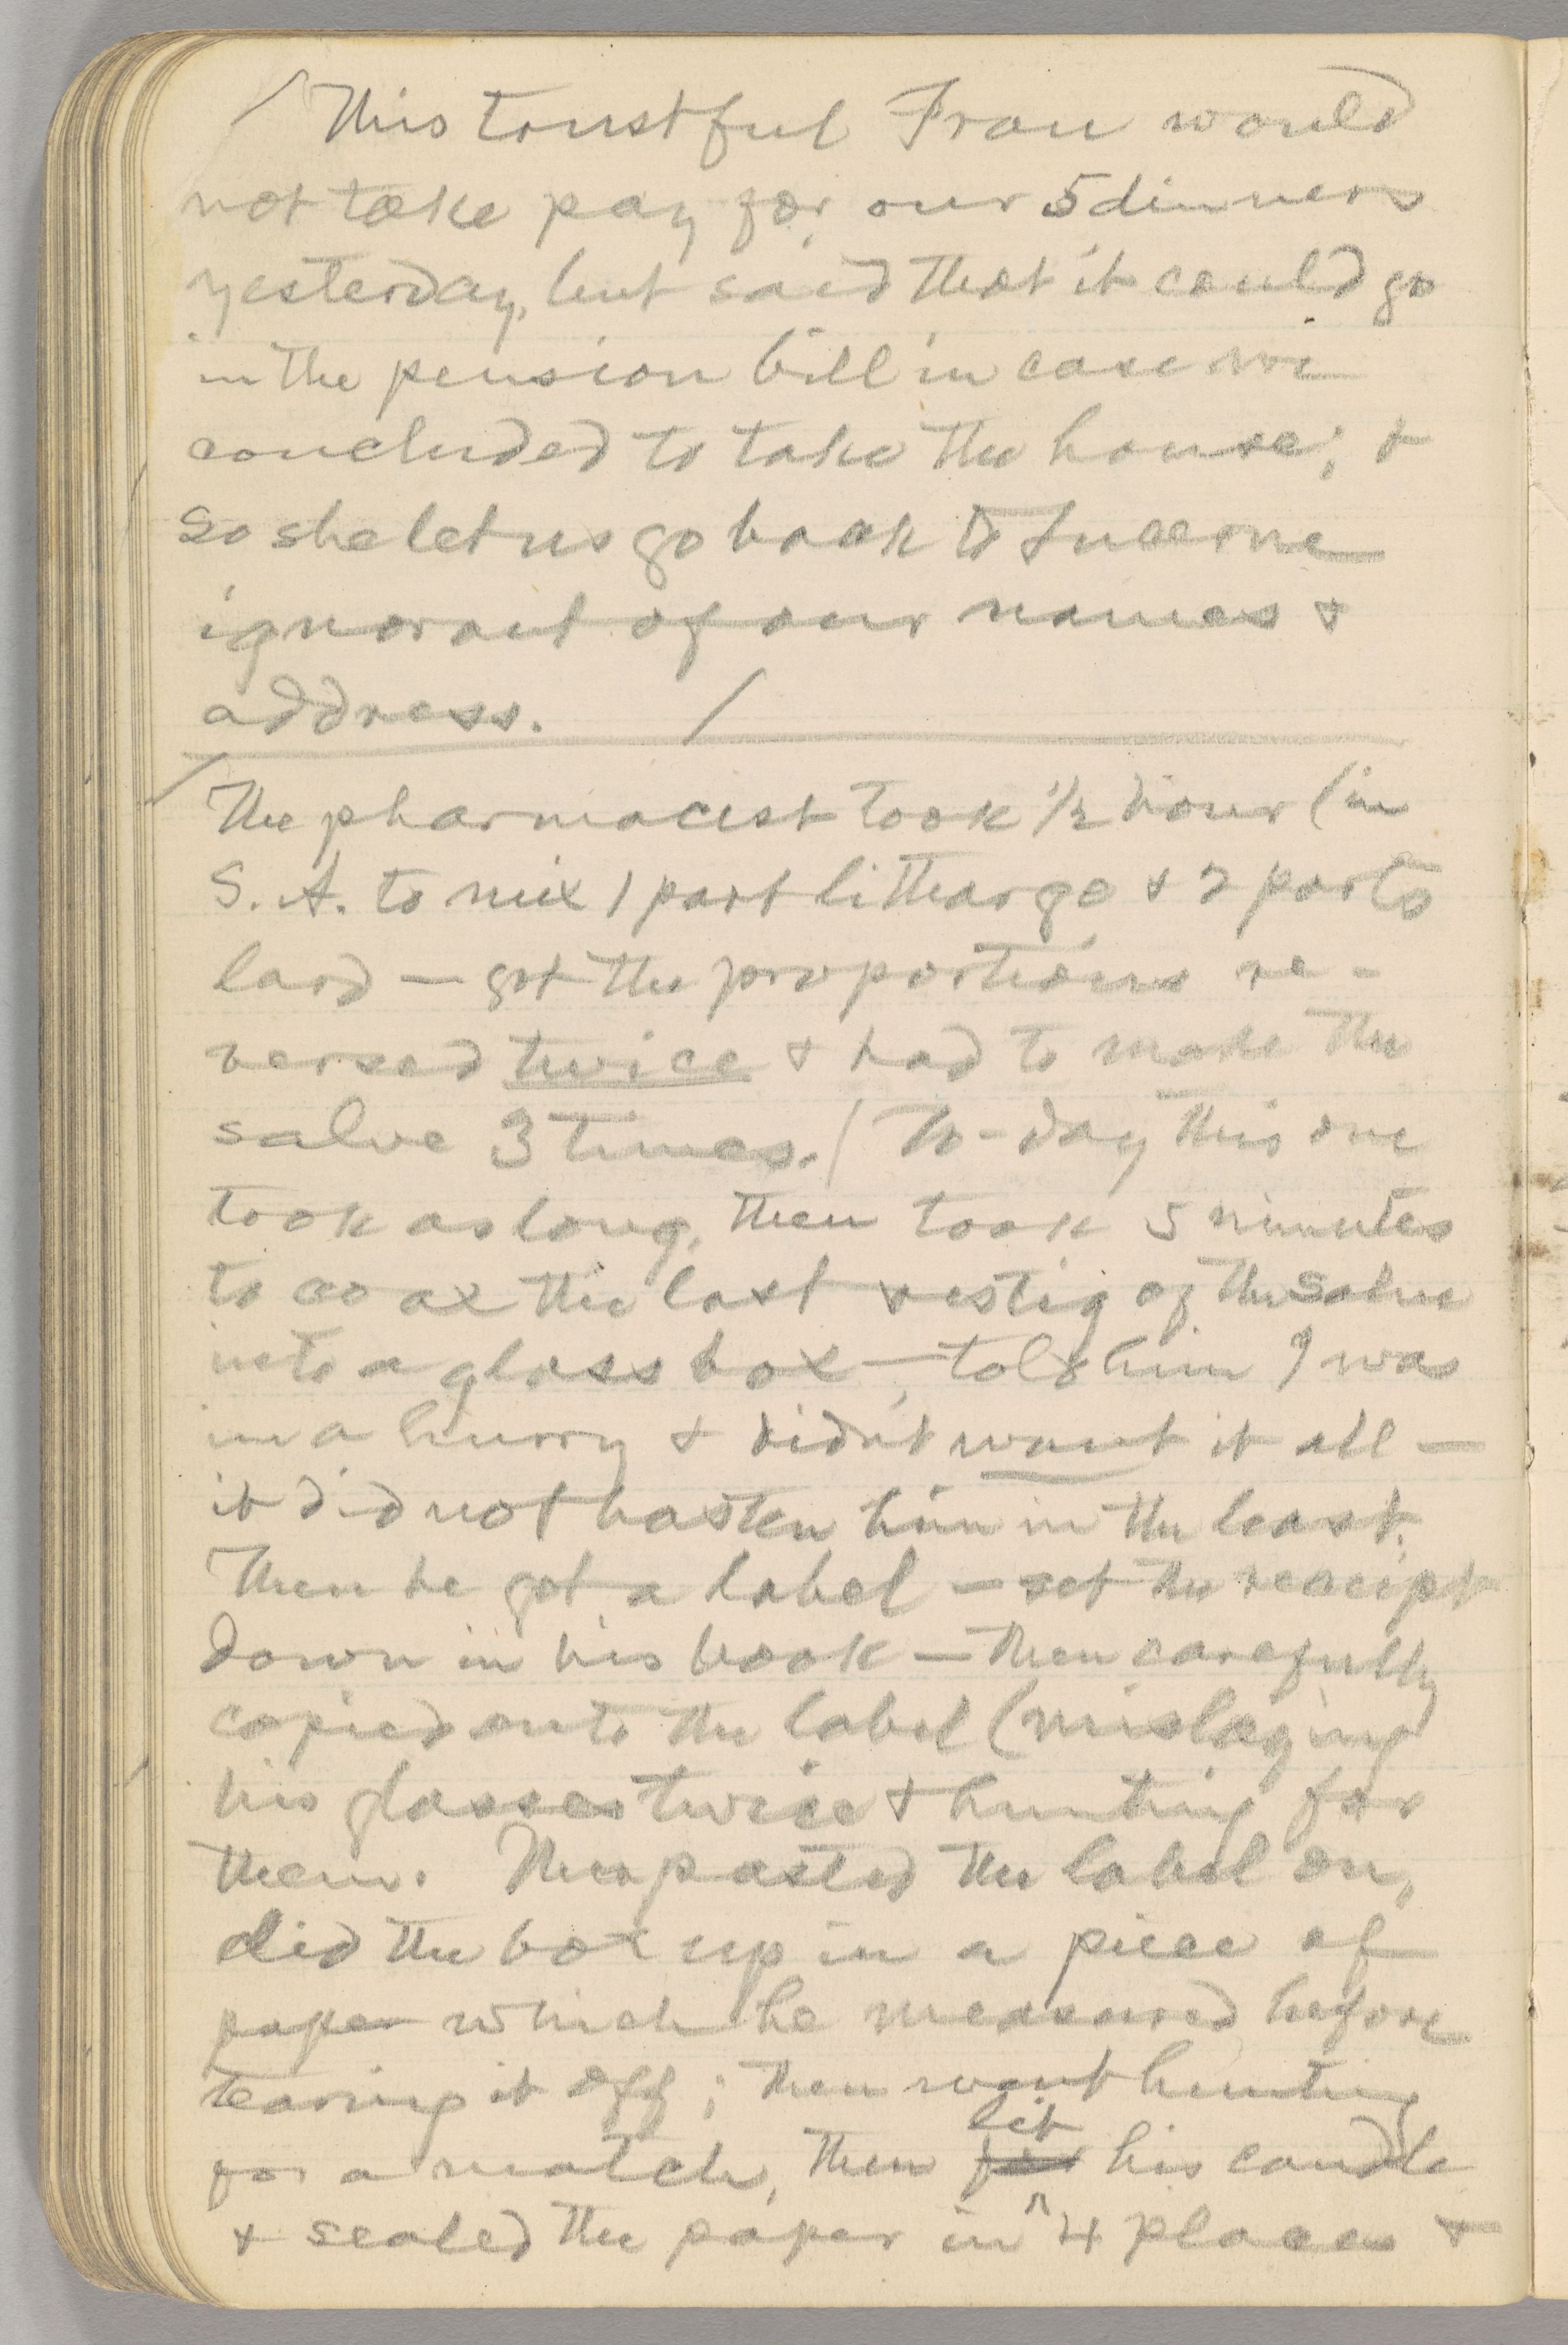 This trustful Frau would
not take pay for our 5 dinners
yesterday, but said that it could go
in the pension bill in case we
concluded to take the house; &
so she let us go back to Lucerne
ignorant of our names &
address. /
The pharmacist took 1/2 hour (in
S. A. to mix 1 part litharge & 2 parts
lard — got the proportions re-
versed twice & had to make the
salve 3 times. / To-day this one
took as long, then took 5 minutes
to coax the last vestig of the salve
into a glass box — told him I was
in a hurry & didn't want it all —
it did not hasten him in the least.
Then he got a label — set the receipt
down in his book — then carefully
copied onto the label (mislaying
his glasses twice & hunting for
them. Then pasted the label on,
did the box up in a piece of
paper which he measured before
tearing it off; then went hunting
for a match, then lit his candle
& sealed the paper in 4 places &